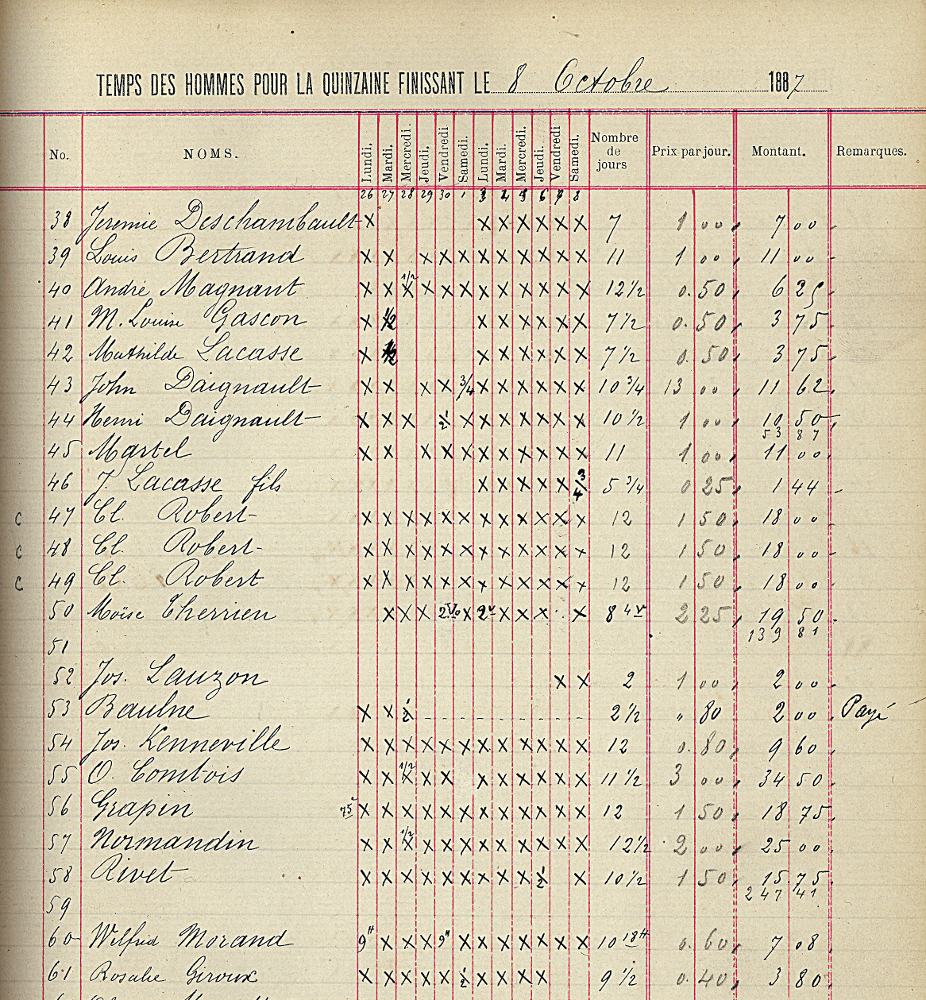 TEMPS DES HOMMES POUR LA QUINZAINE FINISSANT LE 8 Octobre 1887
No. NOMS. Lundi. Mardi. Mercredi. Jeudi. Vendredi Samedi. Lundi. Mardi. Mercredi. Jeudi. Vendredi Samedi. Nombre de jours Prix par jour. Montant. Remarques.
26 27 28 29 30 1 3 4 5 6 7 8
38 Jeremie Deschambault x x x x x x x 7 1 00 7 00
39 Louis Bertrand x x x x x x x x x x x 11 1 00 11 00
40 André Magnant x x 1/2 x x x x x x x x x x 12 1/2 0.50 6 25
41 M. Louise Gascon x 1/2 x x x x x x 7 1/2 0.50 3 75
42 Mathilde Lacasse x 1/2 x x x x x x 7 1/2 0.50 3 75
43 John Daignault x x x x 3/4 x x x x x x 10 3/4 13 00 11 62
44 Henri Daignault x x x 1/2 x x x x x x x 10 1/2 1 00 10 50
53 87
45 Martel x x x x x x x x x x x 11 1 00 11 00
46 J. Lacasse fils x x x x x 3/4 5 3/4 0 25 1 44
c 47 Cl. Robert x x x x x x x x x x x x 12 1 50 18 00
c 48 Cl. Robert x x x x x x x x x x x x 12 1 50 18 00
c 49 Cl. Robert x x x x x x x x x x x x 12 1 50 18 00
50 Moïse Therrien x x x x x x x x 8 2 25 19 50
139 81
51
52 Jos. Lauzon x x 2 1 00 2 00
53 Baulne x x 1/2 2 1/2 " 80 2 00 Payé
54 Jos. Kenneville x x x x x x x x x x x x 12 0.80 9 60
55 O. Comtois x x 1/2 x x x x x x x x x 11 1/2 3 00 34 50
56 Grapin 75c x x x x x x x x x x x x 12 1 50 18 75
57 Normandin x x 1/2 x x x x x x x x x x 12 1/2 2 00 25 00
58 Rivet x x x x x x x x x 1/2 x 10 1/2 1 50 15 75
247 41
59
60 Wilfrid Morand 9h x x x 9h x x x x x x x 10 18h 0.60 7 08
61 Rosalie Giroux x x x x x 1/2 x x x x 9 1/2 0.40 3 80